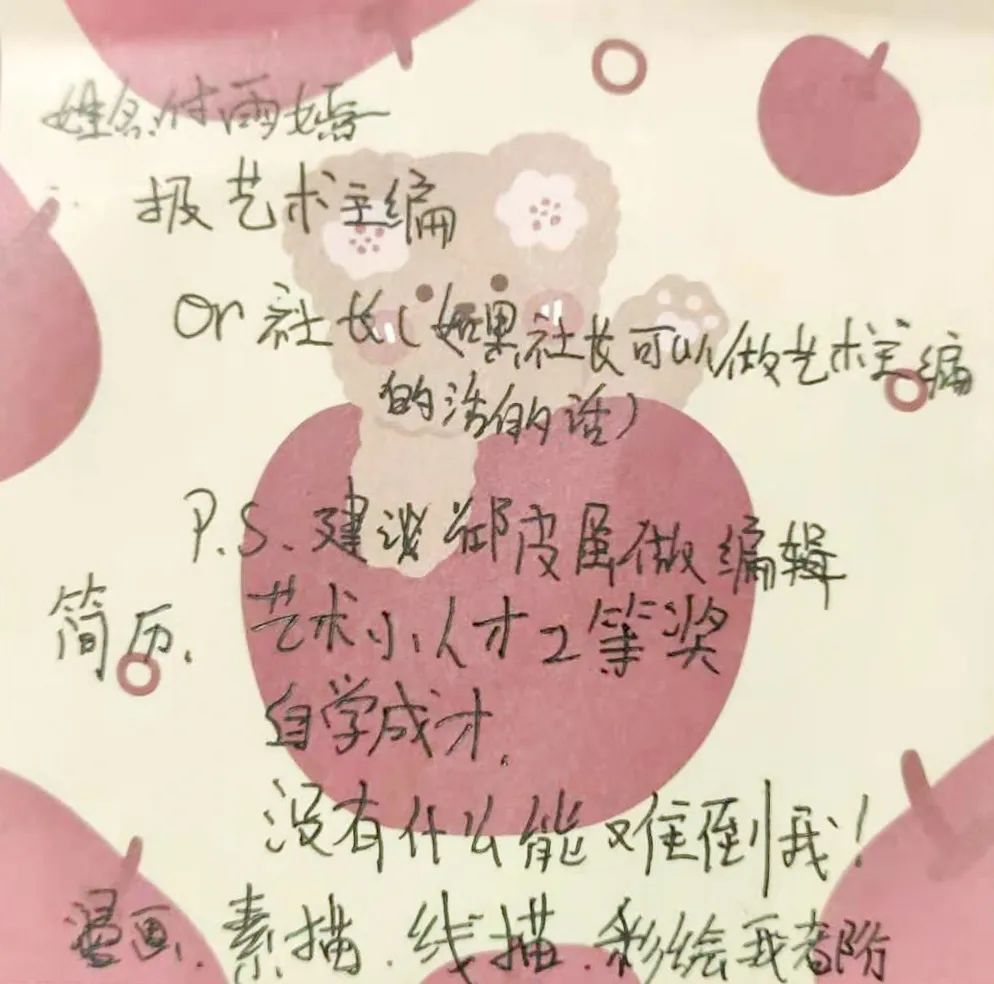 姓名付雨嫣
报艺术主编
Or 社长(如果社长可以做艺术主编
的活的话)
P.S.建议 皮 做编辑
简历. 艺术小人才2等奖
自学成才.
没有什么能难倒我!
漫画.素描.线描.彩绘我都